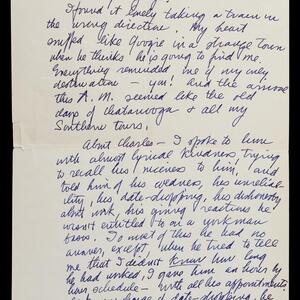 I found it lonely taking a train in
the wrong direction. My heart
sniffed like Georgie in a strange town
when he thinks he is going to find me.
Everything reminded me of my only
destination – you! And the
this A.M. seemed like the old
days of Chatanooga & all my
Southern tours.
About Charles – I spoke to him
with almost lyrical kindness, trying
to recall his niceness to him, and
told him of his vedness, his unrelia-
bility, his date-dropping, his dishonesty
about work, his giving reactions he
wasn't entitled to on a workman
basis. To most of this he had no
answer, except, when he tried to tell
me that I didn't know how long
he had worked, I gave him an hour by
hour schedule – with all his appointments
of date-dropping, he